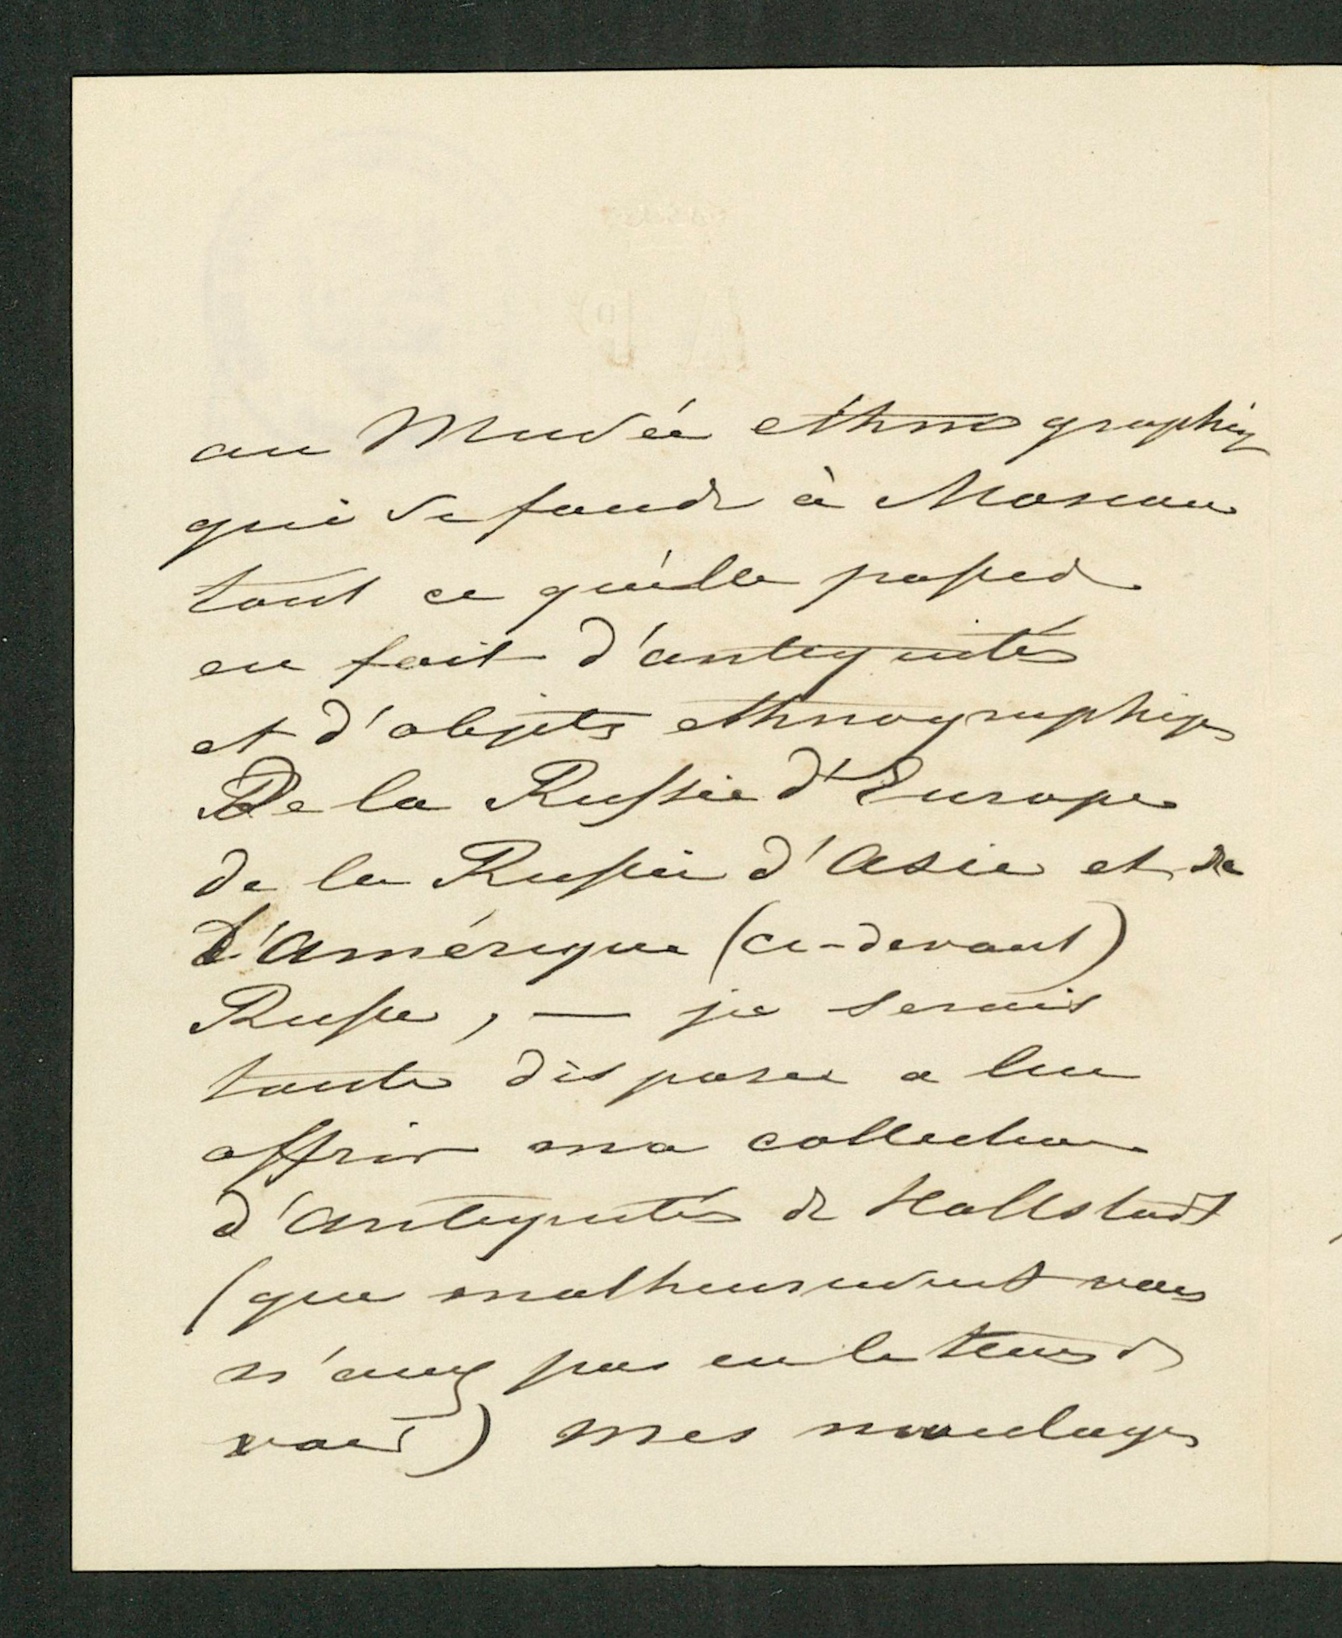 au Musée ethnographiq
qui se fonde à Moscou
tout ce qu'elle possede
en fait d'antiquités
et d'objets ethnographiqs
De la Russie d'Europe
de la Russie d'Asie et de
l'Amérique (ci-devant)
Russe, — je serais
toute disposée a lui
offrir ma collection
d'antiquités de Hallstadt
(que malheureusement vous
n'avez pas eu le tems de
voir) mes moulages